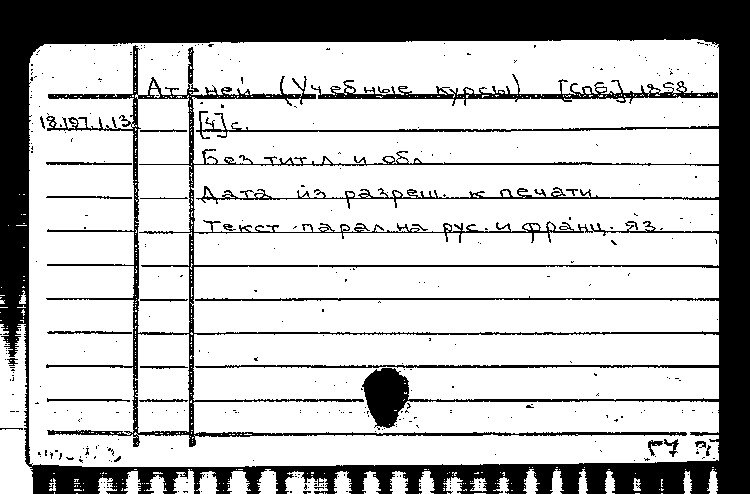 Атеней (Учебные курсы) [Спб], 1858.
18.197.1.13 [4] с.
Без тит. л. и обл.
Дата из разреш. к печати.
Текст парал. на рус. и франц. яз.
57